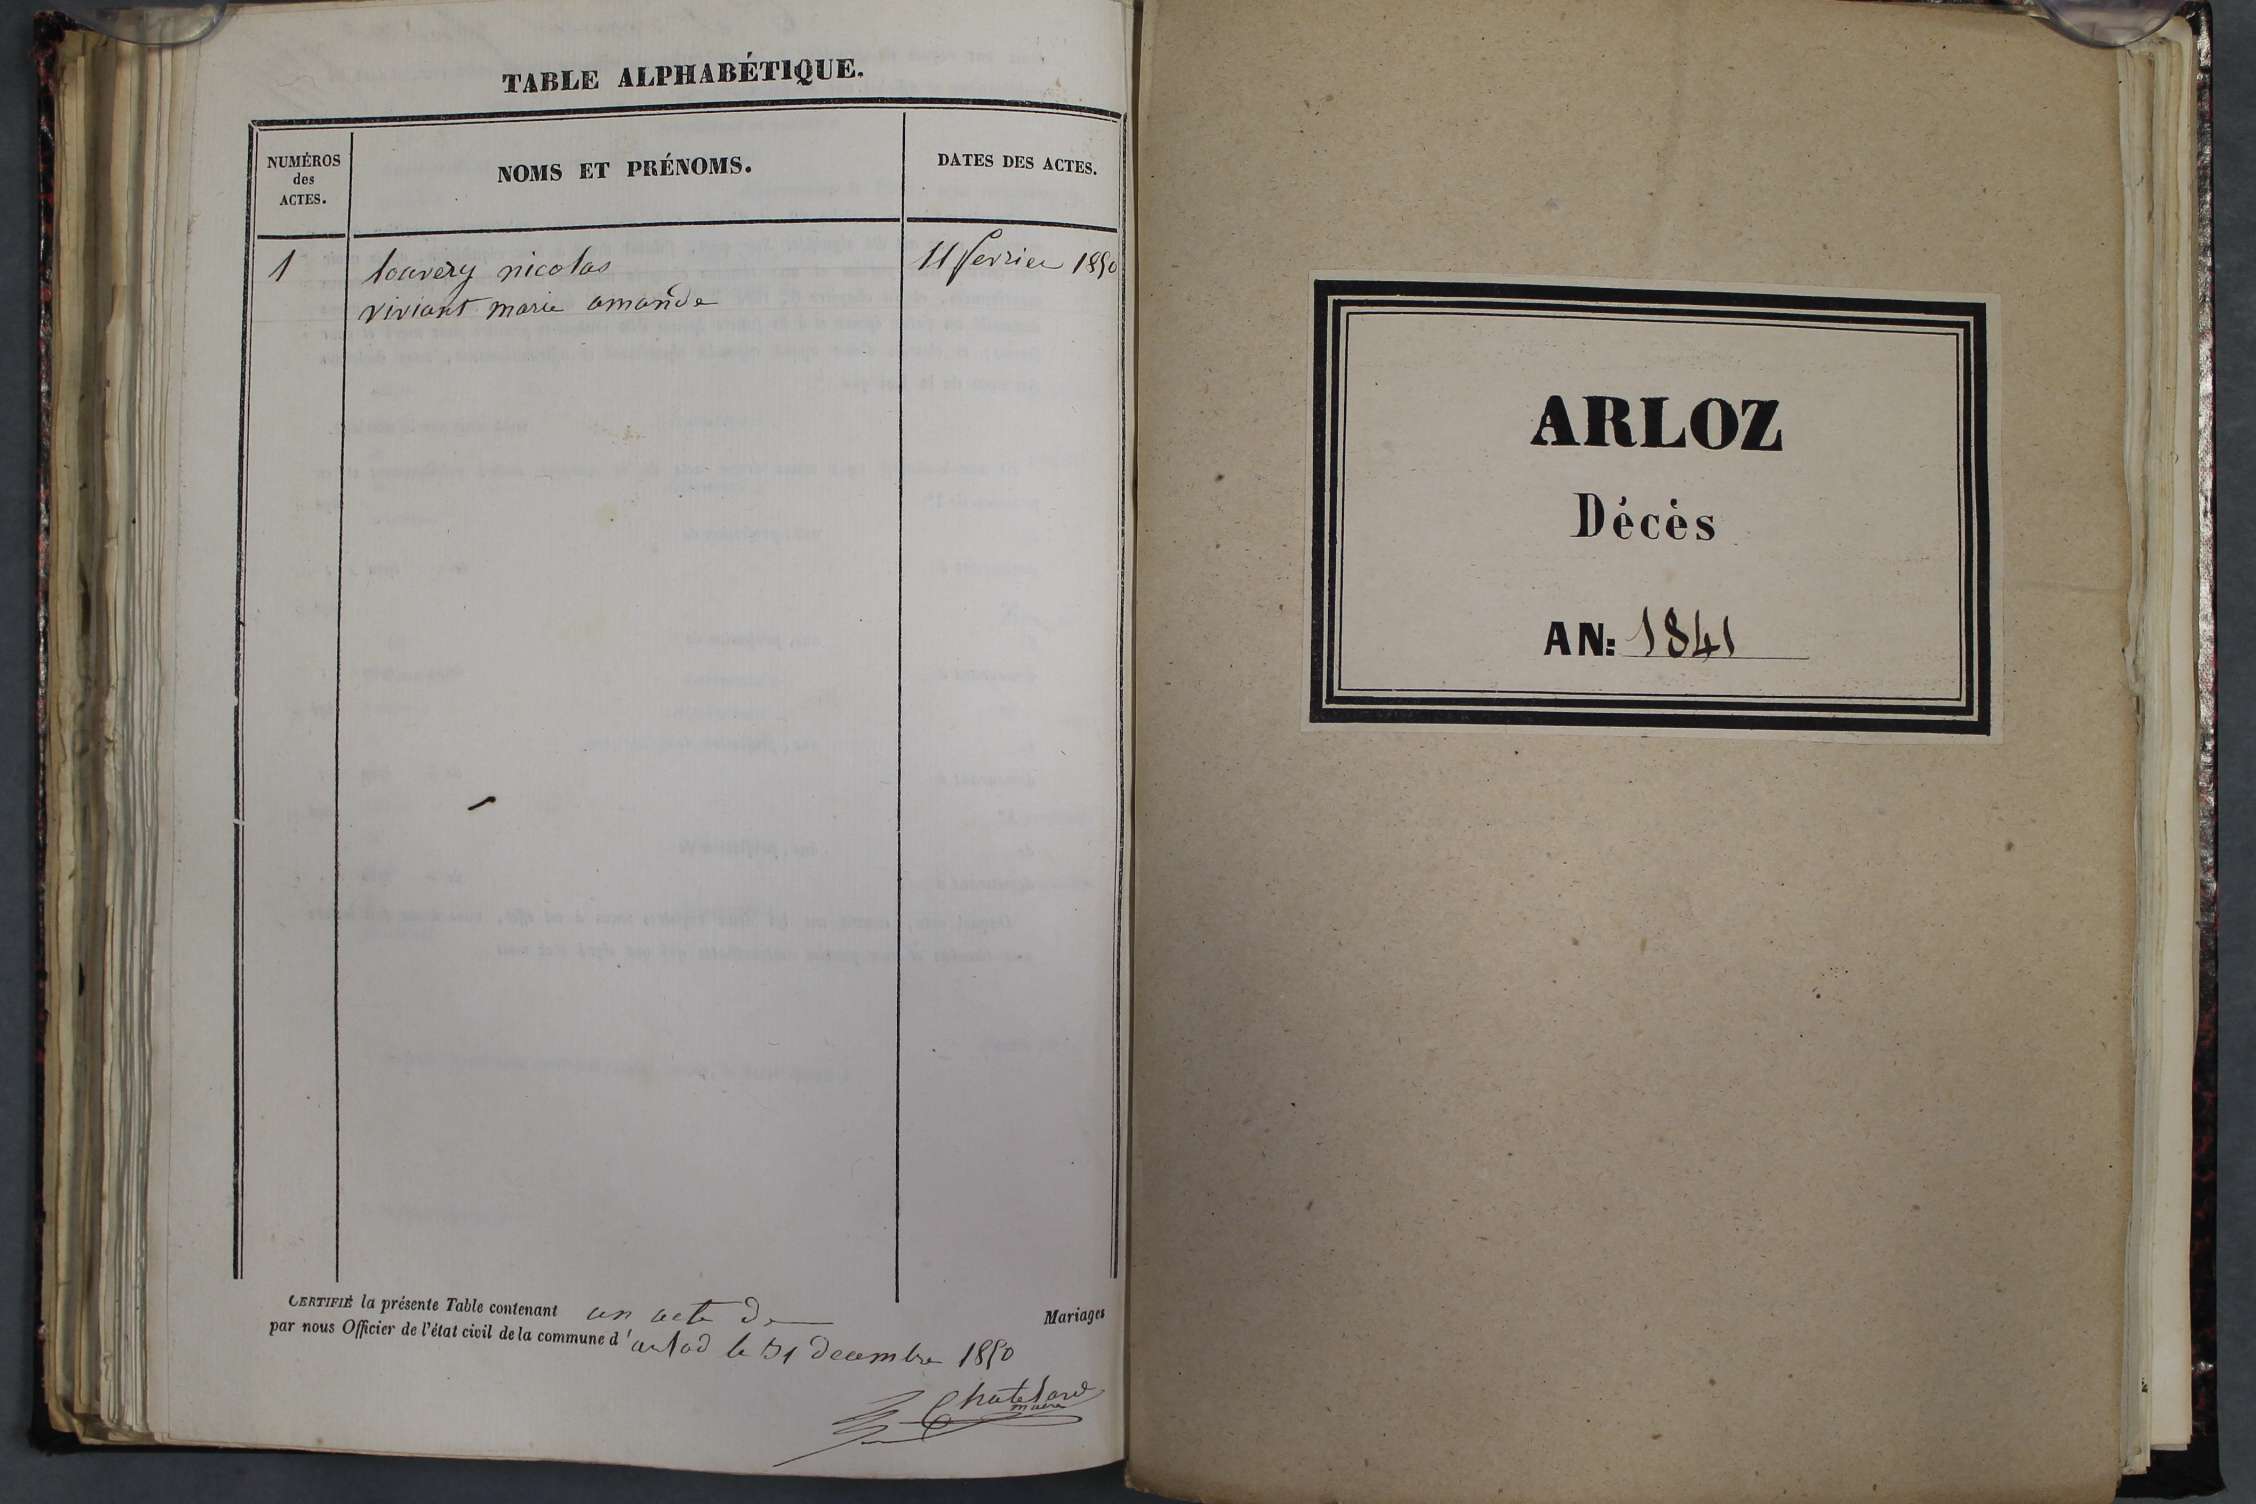 TABLE ALPHABÉTIQUE.
NUMÉROS
des
ACTES.
NOMS ET PRÉNOMS.
DATES DES ACTES.
1
nicolas
11 fevrier 1850
viviant marie amande
CERTIFIÉ la présente Table contenant un acte de Mariages
par nous Officier de l'état civil de la commune d'arlod le 31 decembre 1850
Chatelard
maire
ARLOZ
Décès
AN: 1841